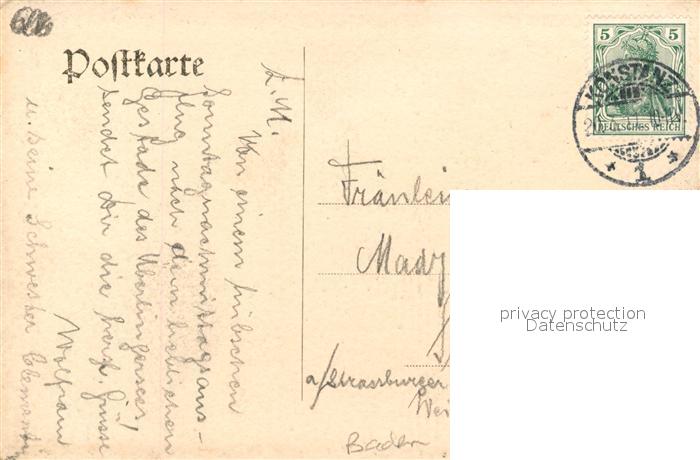 606
Postkarte
L. M.
Von einem hübschen
Sonntagnachmittagsaus-
flug nach dem lieblichen
Gestade des Überlingersees,
sendet Dir die herzl. Grüsse
Wolfram
u. seine Schwester
5 5
DEUTSCHES REICH
KONSTANZ
* 1 *
Fräulein
Mady
a/Strassburger
Wei
Baden
privacy protection
Datenschutz